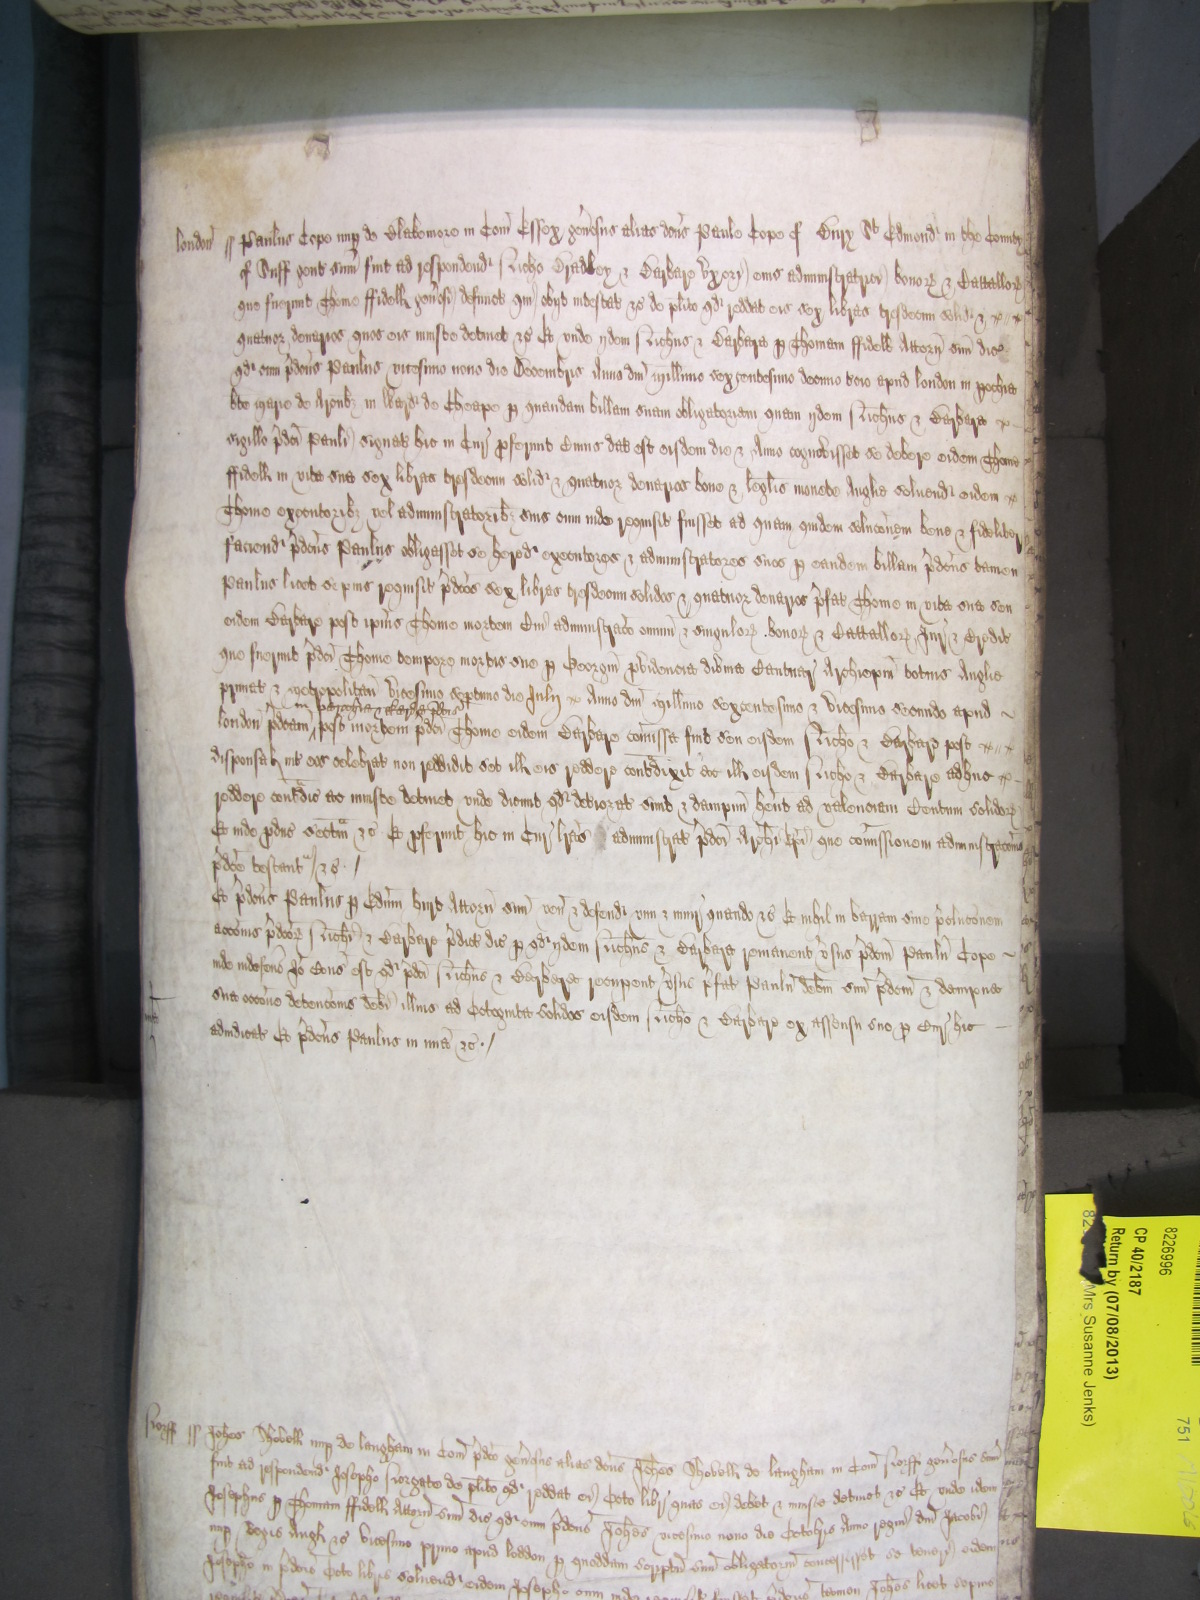 London ss Paulus Cope nup de Blakemore in Com Essex genosus alias dcus Paule Cope of Bury St Edmond in the County
of Suff gent sum fuit ad respondend Richo Bradley & Barbare uxori eius administratrici bonor & Cattallor
que fuerunt Thome Ffidell genosi defunct qui obijt intestat &c de plito qd reddat eis sex libras tresdecim solid &
quatuor denarios quos eis iniuste detinet &c Et unde ijdem Richus & Barbara p Thomam ffidell Attorn suum dic
qd cum pdcus Paulus vicesimo nono die Decembris Anno dni millimo sexcentesimo decimo apud London in pochia
bte Marie de Arcubz in Ward de Cheape p quandam billam suam obligatoriam quam ijdem Richus & Barbara
sigillo pdci Pauli signat hic in Cur proferunt Cuius dat est eisdem die & Anno cognovisset se debere eidem Thome
ffidell in vita sua sex libras tresdecim solid & quatuor denarios bone & leglis monete Anglie solvend eidem
Thome executoribz vel administratoribz suis cum inde requisit fuisset ad quam quidem soluconem bene & fideliter
faciend pdcus Paulus obligasset se hered executores & administratores suos p eandem billam pdcus tamen
Paulus licet sepius requisit pdcos sex libras tresdecim solidos & quatuor denarios pfat Thome in vita sua seu
eidem Barbare post ipius Thome mortem Cui administraco omnium & singulor bonor & Cattallor Jur & Credit
que fuerunt pdci Thome tempore mortis sue p Georgium providencia divina Cantuar Archiepum totius Anglie
primat & metropolitan vicesimo septimo die Julij Anno dni millimo sexcentesimo & vicesimo secundo apud
in parochia & Warda pdcis
London pdcam post mortem pdci Thome eidem Barbare comissa fuit seu eisdem Richo & Barbare post
disponsal int eos celebrat non reddidit set ill eis reddere contradixit & ill eisdem Richo & Barbare adhuc
reddere contradic ac iniuste detinet unde dicunt qd deteriorat sunt & dampnum hent ad valenciam Centum solidor
Et inde producunt sectam &c Et proferunt hic in Cur lras administrat pdci Archiepi que comissionem administraconis
pdce testantur &c
Et pdcus Paulus p Edmum Attorn suum ven & defend vim & iniur quando &c Et nichil in barram sive preclusionem
accionis pdcor Richi & Barbare pdict dic p qd ijdem Richus & Barbara remanent versus pdcum Paulum Cope
inde indefens Jo cons est qd pdci Richus & Barbara recuperent versus pfat Paulum debitum suum pdcum & dampna
sua occone detenconis debi illius ad Octoginta solidos eisdem Richo & Barbare ex assensu suo p Cur hic
adiudicat Et pdcus Paulus in mia &c
Norff ss Johes Shovell nup de Langham in Com pdco genosus alias dcus Johes Shovell de Langham in Com Norff genosus sum
fuit ad respondend Josepho Norgate de plito qd reddat ei Octo libr quas ei debet & iniuste detinet &c Et unde idem
Josephus p Thomam ffidell Attorn suum dic qd cum pdcus Johes vicesimo nono die Octobris Anno regni dni Jacobi
nup Regis Angl &c vicesimo primo apud Loddon p quoddam scriptum suum obligatorium concessisset se teneri eidem
Josepho in pdcis Octo libris solvend eidem Josepho cum inde requisit fuisset pdcus tamen Johes licet sepius
8226996
CP 40/2187
Return by (07/08/2013)
(Mrs Susanne Jenks)
751